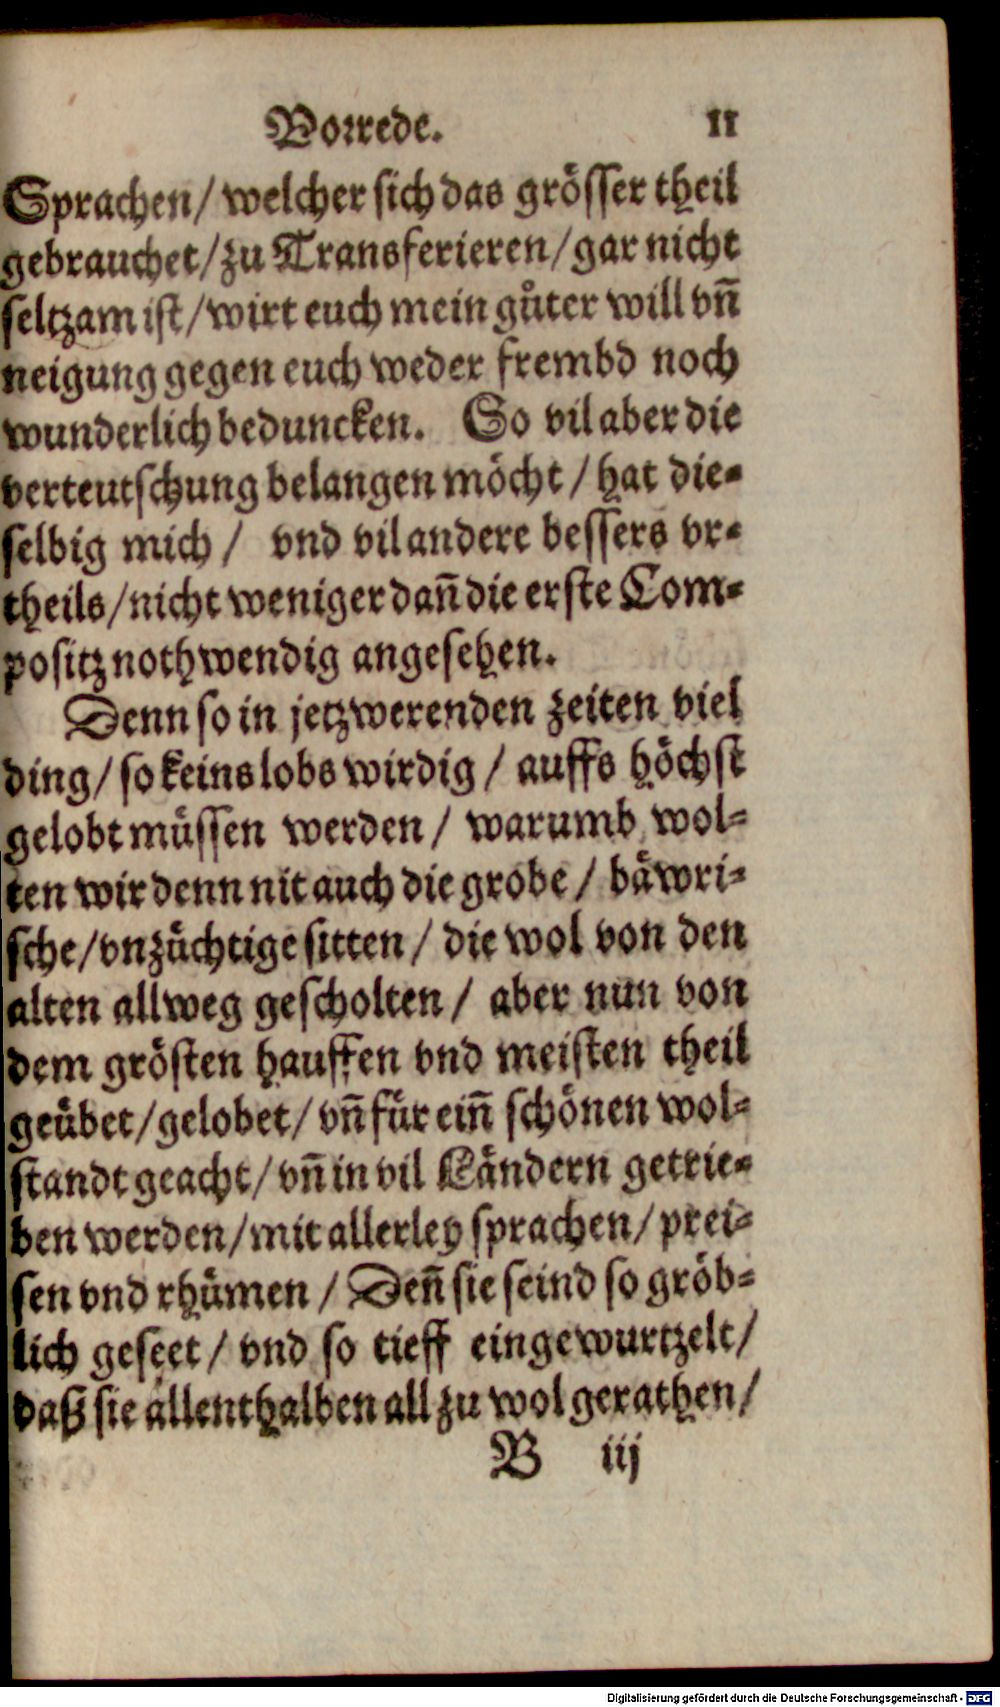 Vorrede. 11
Sprachen/ welcher sich das grösser theil
gebrauchet/ zu Transferieren/ gar nicht
seltzam ist/ wirt euch mein gůter will vñ
neigung gegen euch weder frembd noch
wunderlich beduncken. So vil aber die
verteutschung belangen möcht/ hat die-
selbig mich/ vnd vil andere bessers vr-
theils/ nicht weniger dañ die erste Com-
positz nothwendig angesehen.
Denn so in jetzwerenden zeiten viel
ding/ so keins lobs wirdig/ auffs höchst
gelobt müssen werden/ warumb wol-
ten wir denn nit auch die grobe/ bäwri-
sche/ vnzüchtige sitten/ die wol von den
alten allweg gescholten/ aber nun von
dem grösten hauffen vnd meisten theil
geübet/ gelobet/ vñ für eiñ schönen wol-
standt geacht/ vñ in vil Ländern getrie-
ben werden/ mit allerley sprachen/ prei-
sen vnd rhümen/ Deñ sie seind so gröb-
lich geseet/ vnd so tieff eingewurtzelt/
daß sie allenthalben all zu wol gerathen/
B iij
Digitalisierung gefördert durch die Deutsche Forschungsgemeinschaft - DFG